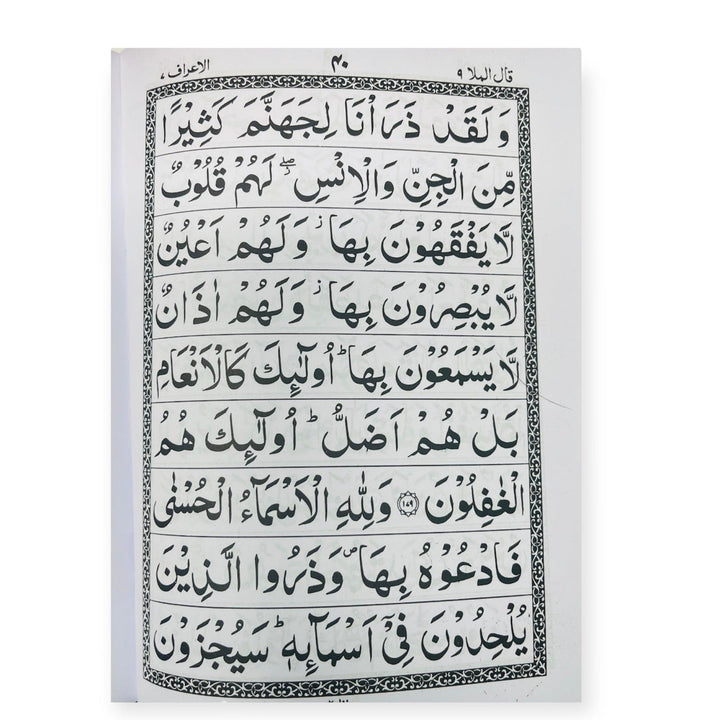 قال الملا ۹ ۴۰ الاعراف ۷
وَلَقَدْ ذَرَاْنَا لِجَهَنَّمَ كَثِيْرًا
مِّنَ الْجِنِّ وَالْاِنْسِ ۖ لَهُمْ قُلُوْبٌ
لَّا يَفْقَهُوْنَ بِهَا ؗ وَلَهُمْ اَعْيُنٌ
لَّا يُبْصِرُوْنَ بِهَا ؗ وَلَهُمْ اٰذَانٌ
لَّا يَسْمَعُوْنَ بِهَا ؕ اُولٰٓئِكَ كَالْاَنْعَامِ
بَلْ هُمْ اَضَلُّ ؕ اُولٰٓئِكَ هُمُ
الْغٰفِلُوْنَ ۱۷۹ وَلِلّٰهِ الْاَسْمَآءُ الْحُسْنٰى
فَادْعُوْهُ بِهَا ۪ وَذَرُوا الَّذِيْنَ
يُلْحِدُوْنَ فِيْٓ اَسْمَآئِهٖ ؕ سَيُجْزَوْنَ